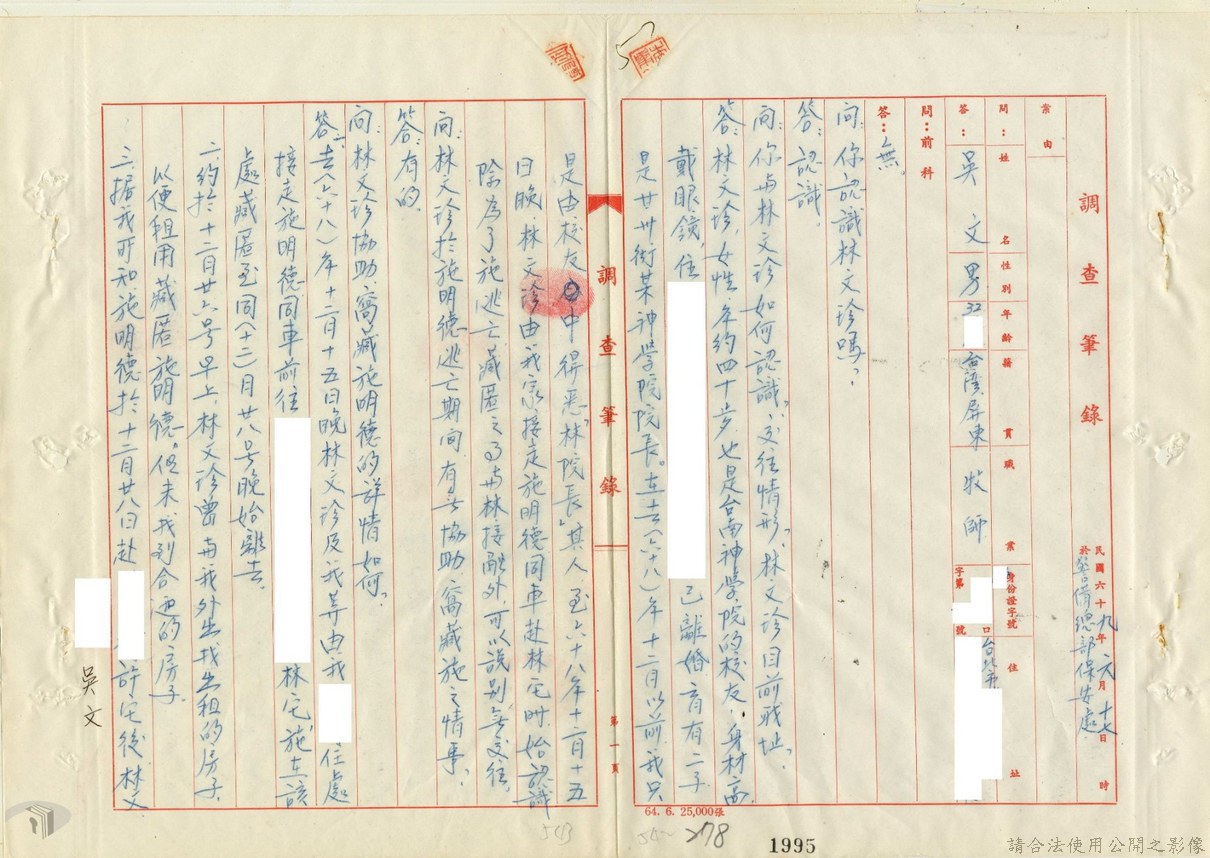 調查筆錄
民國六十九年元月十七日 時
於警備總部保安處
案由
問：姓名 性別 年齡 籍貫 職業 身份證字號 住址
答：吳文 男 32 台灣屏東 牧師 字第 號 台北市
問：前科
答：無。
問：你認識林文珍嗎？
答：認識。
問：你與林文珍如何認識？交往情形？林文珍目前職址？
答：林文珍，女性，年約四十歲，也是台南神學院的校友，身材高，
戴眼鏡，住 已離婚，育有二子，
是廿卅街某神學院院長。在去（六十八）年十二月以前，我只
64. 6. 25,000張
278
1995
調查筆錄
第一頁
是由校友中得悉「林院長」其人，至六十八年十二月十五
日晚，林文珍由我家接走施明德同車赴林宅時，始認識
除為了施逃亡藏匿之事與林接觸外，可以說別無交往。
問：林文珍於施明德逃亡期間有無協助窩藏施之情事？
答：有的。
問：林文珍協助窩藏施明德的詳情如何？
答：一、去（六十八）年十二月十五日晚林文珍及我等由我 住處
接走施明德同車前往 林宅，施在該
處藏匿至同（十二）月廿八號晚始離去。
二、約於十二月廿六號早上，林文珍曾與我外出找出租的房子，
以便租用藏匿施明德。但未找到合適的房子。
三、據我所知施明德於十二月廿八日赴 許宅後，林文
吳文
543
請合法使用公開之影像